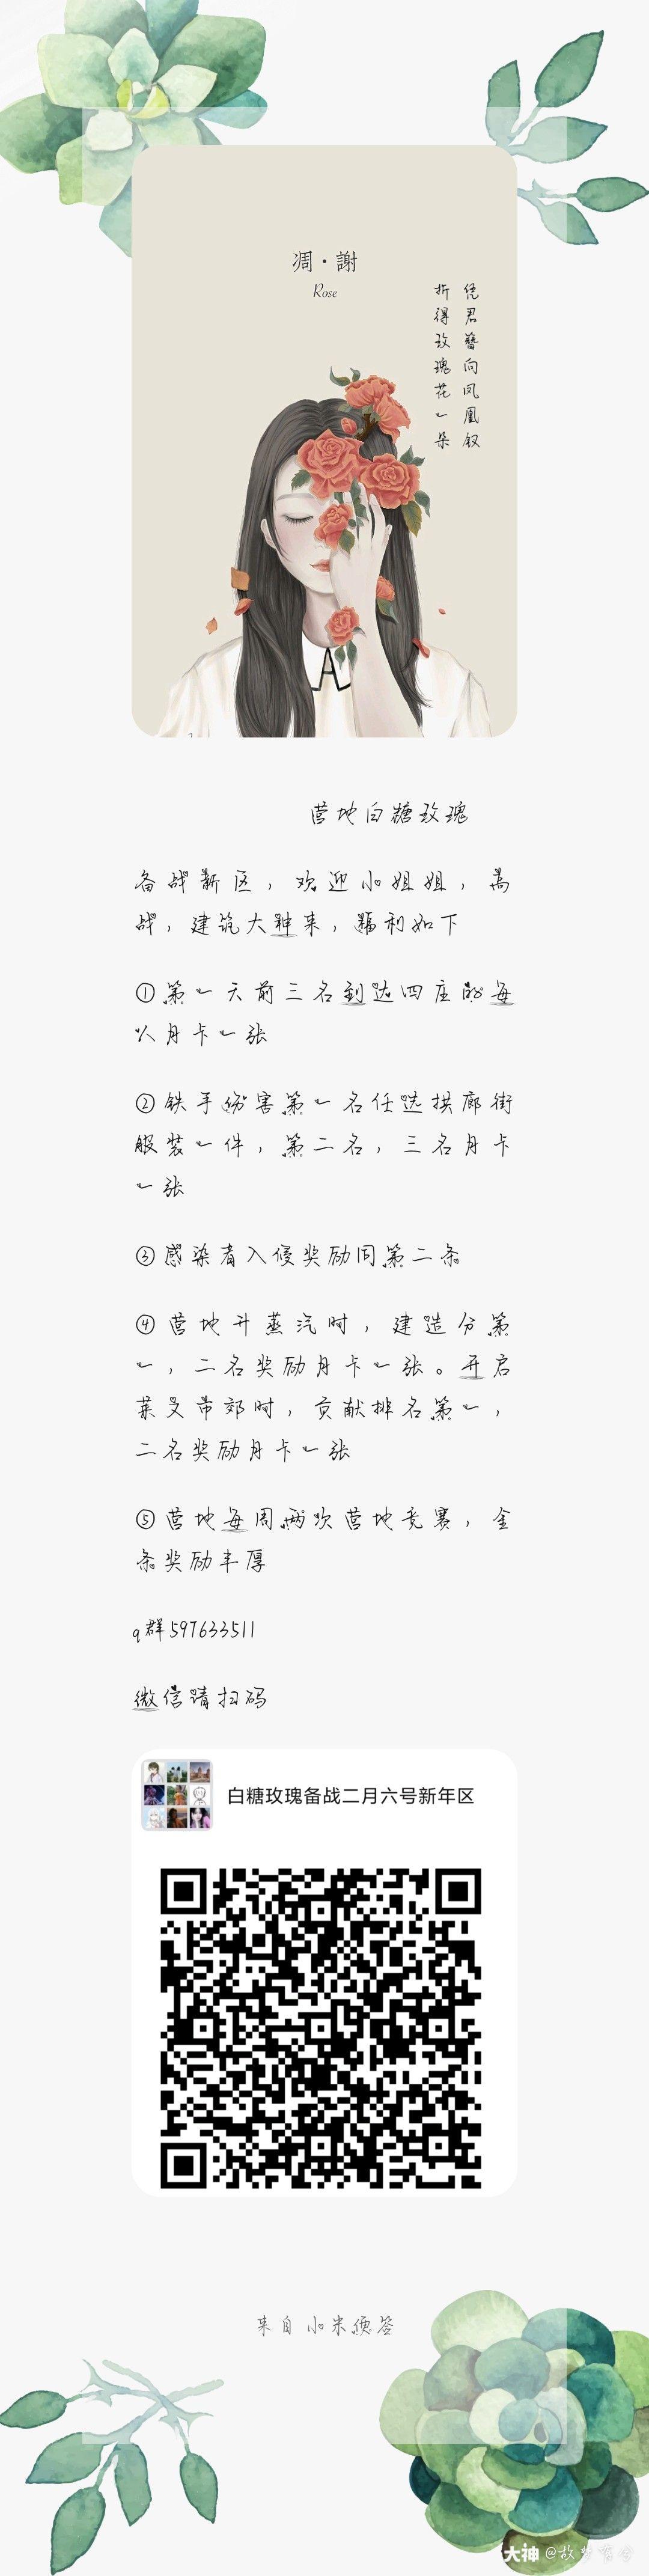 凋·謝
Rose
凭君簪向凤凰钗
折得玫瑰花一朵
营地白糖玫瑰
备战新区，欢迎小姐姐，高
战，建筑大神来，福利如下
①第一天前三名到达四座的每
人月卡一张
②铁手伤害第一名任选拱廊街
服装一件，第二名，三名月卡
一张
③感染者入侵奖励同第二条
④营地升蒸汽时，建造分第
一，二名奖励月卡一张。开启
莱文市郊时，贡献排名第一，
二名奖励月卡一张
⑤营地每周两次营地竞赛，金
条奖励丰厚
q群597633511
微信请扫码
白糖玫瑰备战二月六号新年区
来自小米便签
大神